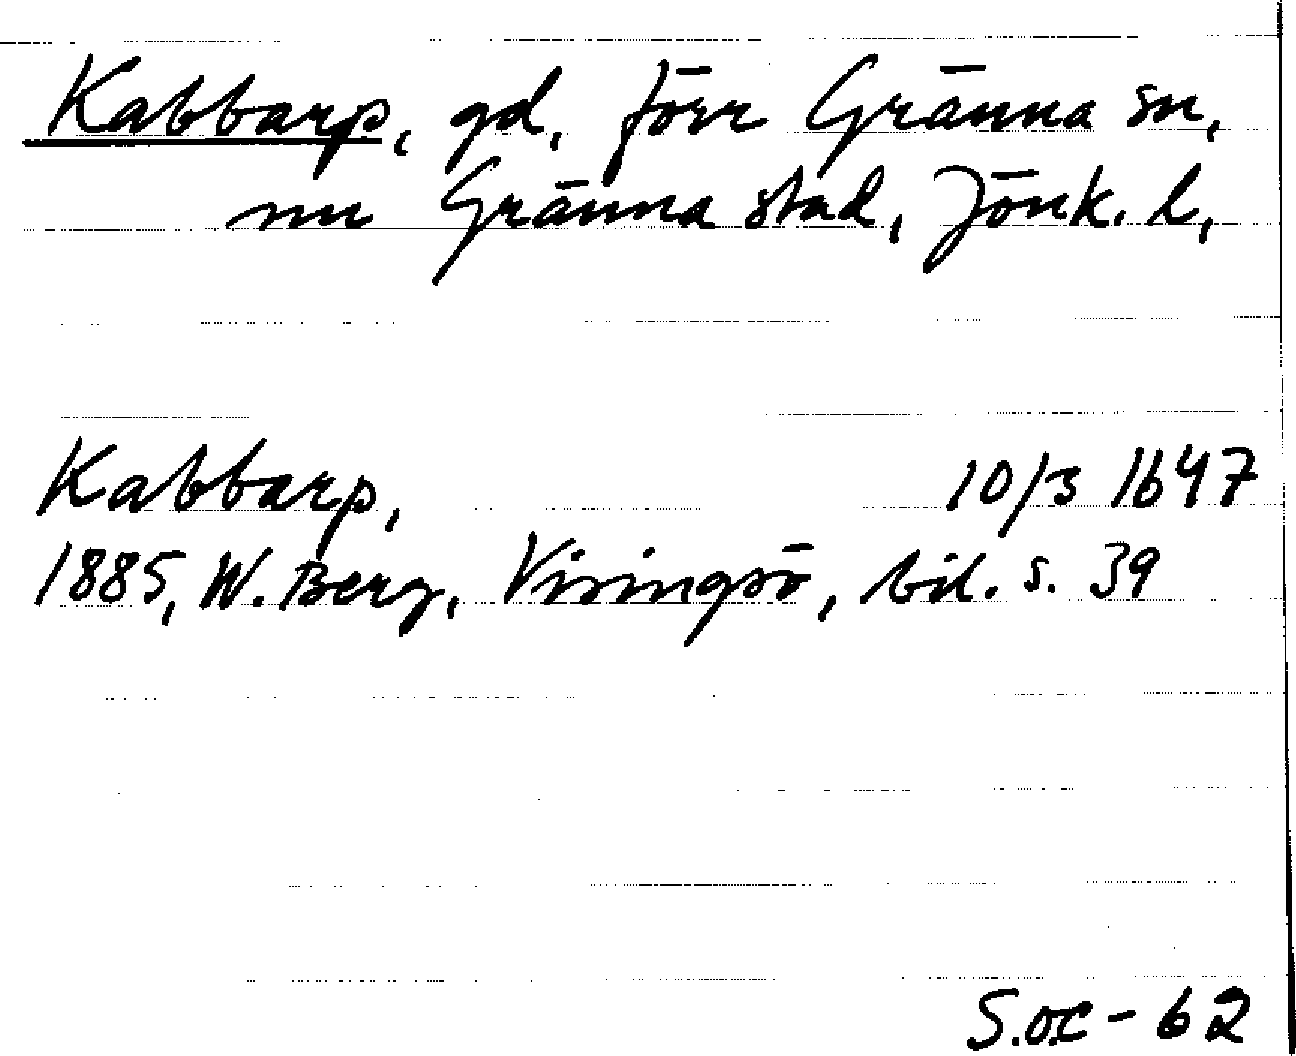 Kabbarp, gd, förr Gränna sn,
nu Gränna stad, Jönk. l,
Kabbarp, 10/3 1647
1885, W. Berg, Visingsö, bil. s. 39
S.o.c - 62